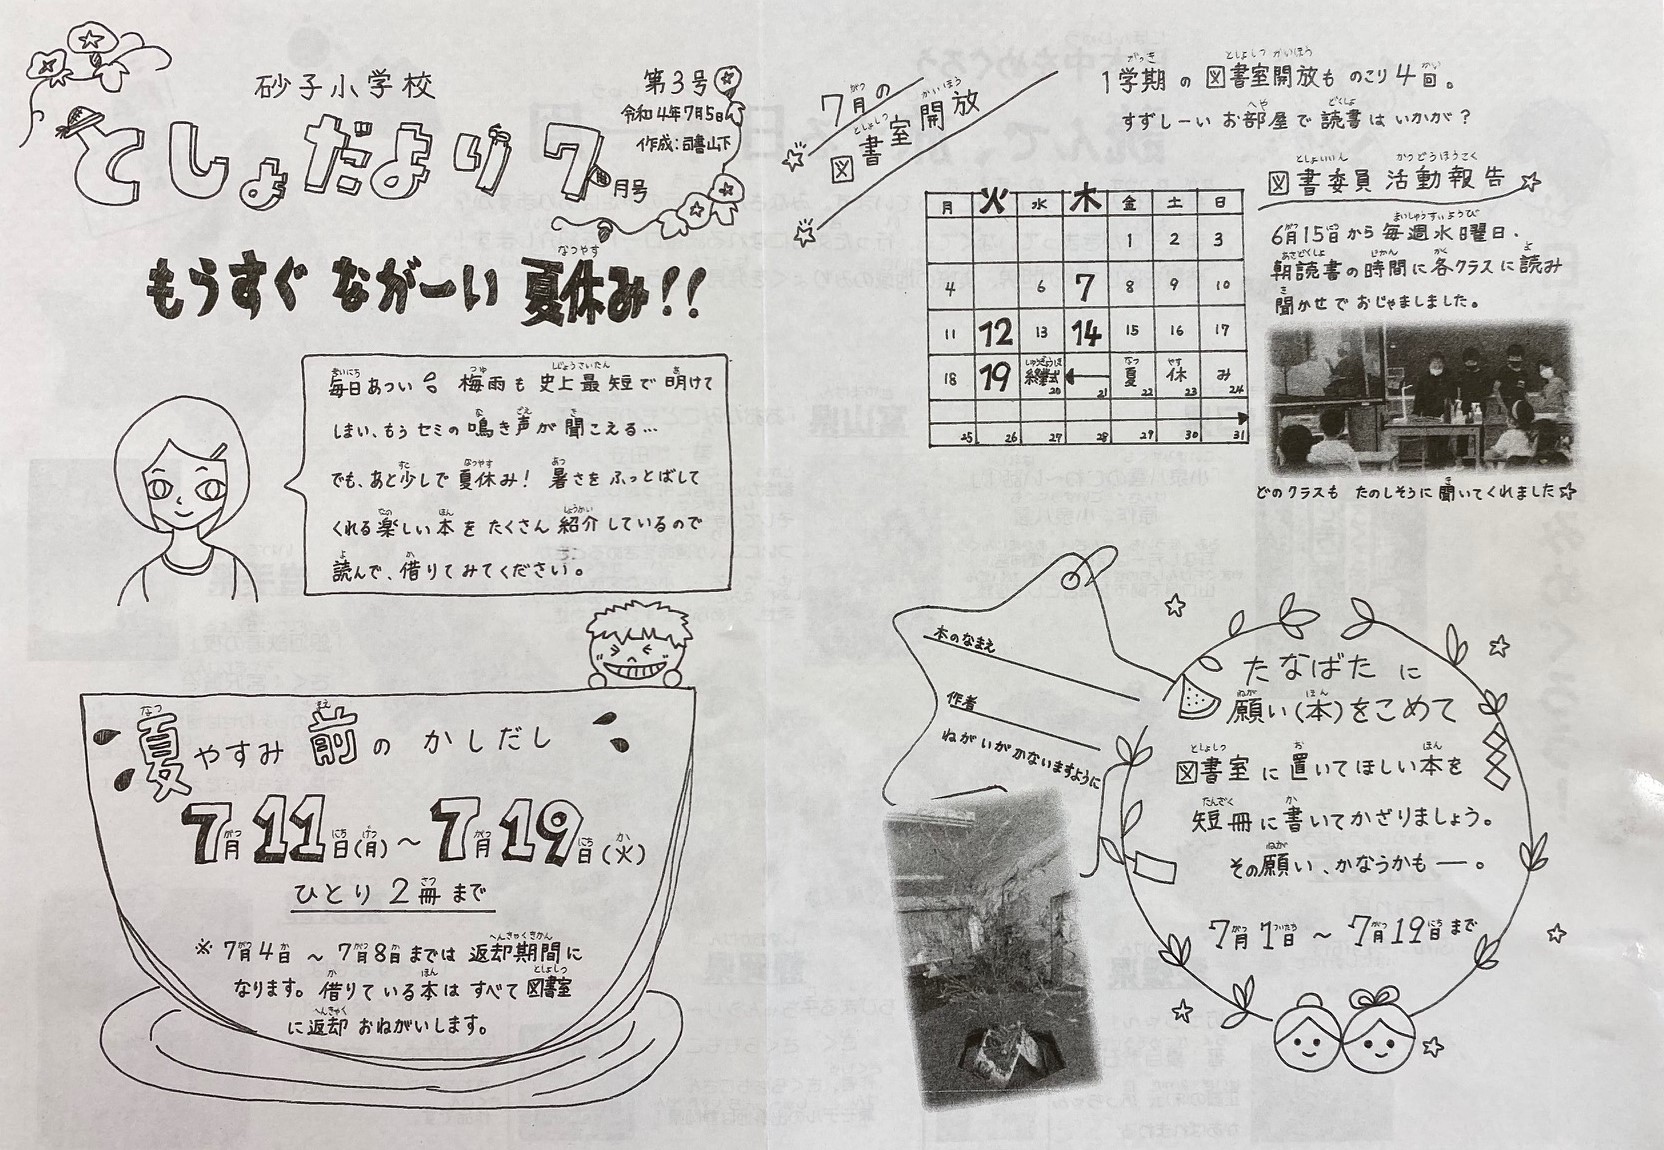 砂子小学校
第3号
令和4年7月5日
作成：司書山下
としょだより7月号
もうすぐ ながーい 夏休み!!
毎日あつい 梅雨も史上最短で明けて
しまい、もうセミの鳴き声が聞こえる…
でも、あと少しで夏休み! 暑さをふっとばして
くれる楽しい本をたくさん紹介しているので
読んで、借りてみてください。
夏やすみ前のかしだし
7月11日(月)～7月19日(火)
ひとり2冊まで
※7月4日～7月8日までは返却期間に
なります。借りている本はすべて図書室
に返却おねがいします。
7月の
図書室開放
1学期の図書室開放ものこり4回。
すずしーいお部屋で読書はいかが?
月 火 水 木 金 土 日
1 2 3
4 6 7 8 9 10
11 12 13 14 15 16 17
18 19 終業式 20 21 夏 22 休 23 み 24
25 26 27 28 29 30 31
図書委員 活動報告☆
6月15日から毎週水曜日、
朝読書の時間に各クラスに読み
聞かせでおじゃましました。
どのクラスも たのしそうに聞いてくれました☆
本のなまえ
作者
ねがいがかないますように
たなばたに
願い(本)をこめて
図書室に置いてほしい本を
短冊に書いてかざりましょう。
その願い、かなうかも―。
7月1日～7月19日まで